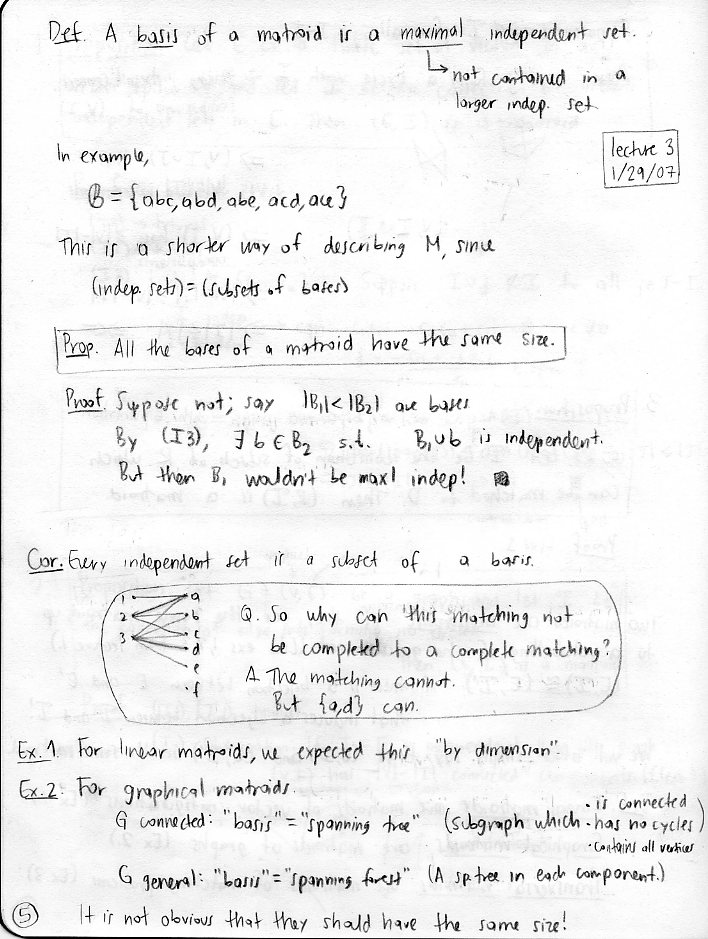 Def. A basis of a matroid is a maximal independent set.
↳ not contained in a
larger indep. set.
lecture 3
1/29/07
In example,
B = {abc, abd, abe, acd, ace}
This is a shorter way of describing M, since
(indep. sets) = (subsets of bases)
Prop. All the bases of a matroid have the same size.
Proof. Suppose not; say |B₁| < |B₂| are bases
By (I3), ∃ b ∈ B₂ s.t. B₁∪b is independent.
But then B₁ wouldn't be maxl indep!
Cor. Every independent set is a subset of a basis.
1 a
2 b
3 c
d
e
f
Q. So why can this matching not
be completed to a complete matching?
A. The matching cannot.
But {a,d} can.
Ex. 1 For linear matroids, we expected this "by dimension".
Ex. 2. For graphical matroids.
G connected: "basis" = "spanning tree" (subgraph which · is connected
· has no cycles
· contains all vertices)
G general: "basis" = "spanning forest" (A sp. tree in each component.)
It is not obvious that they should have the same size!
5